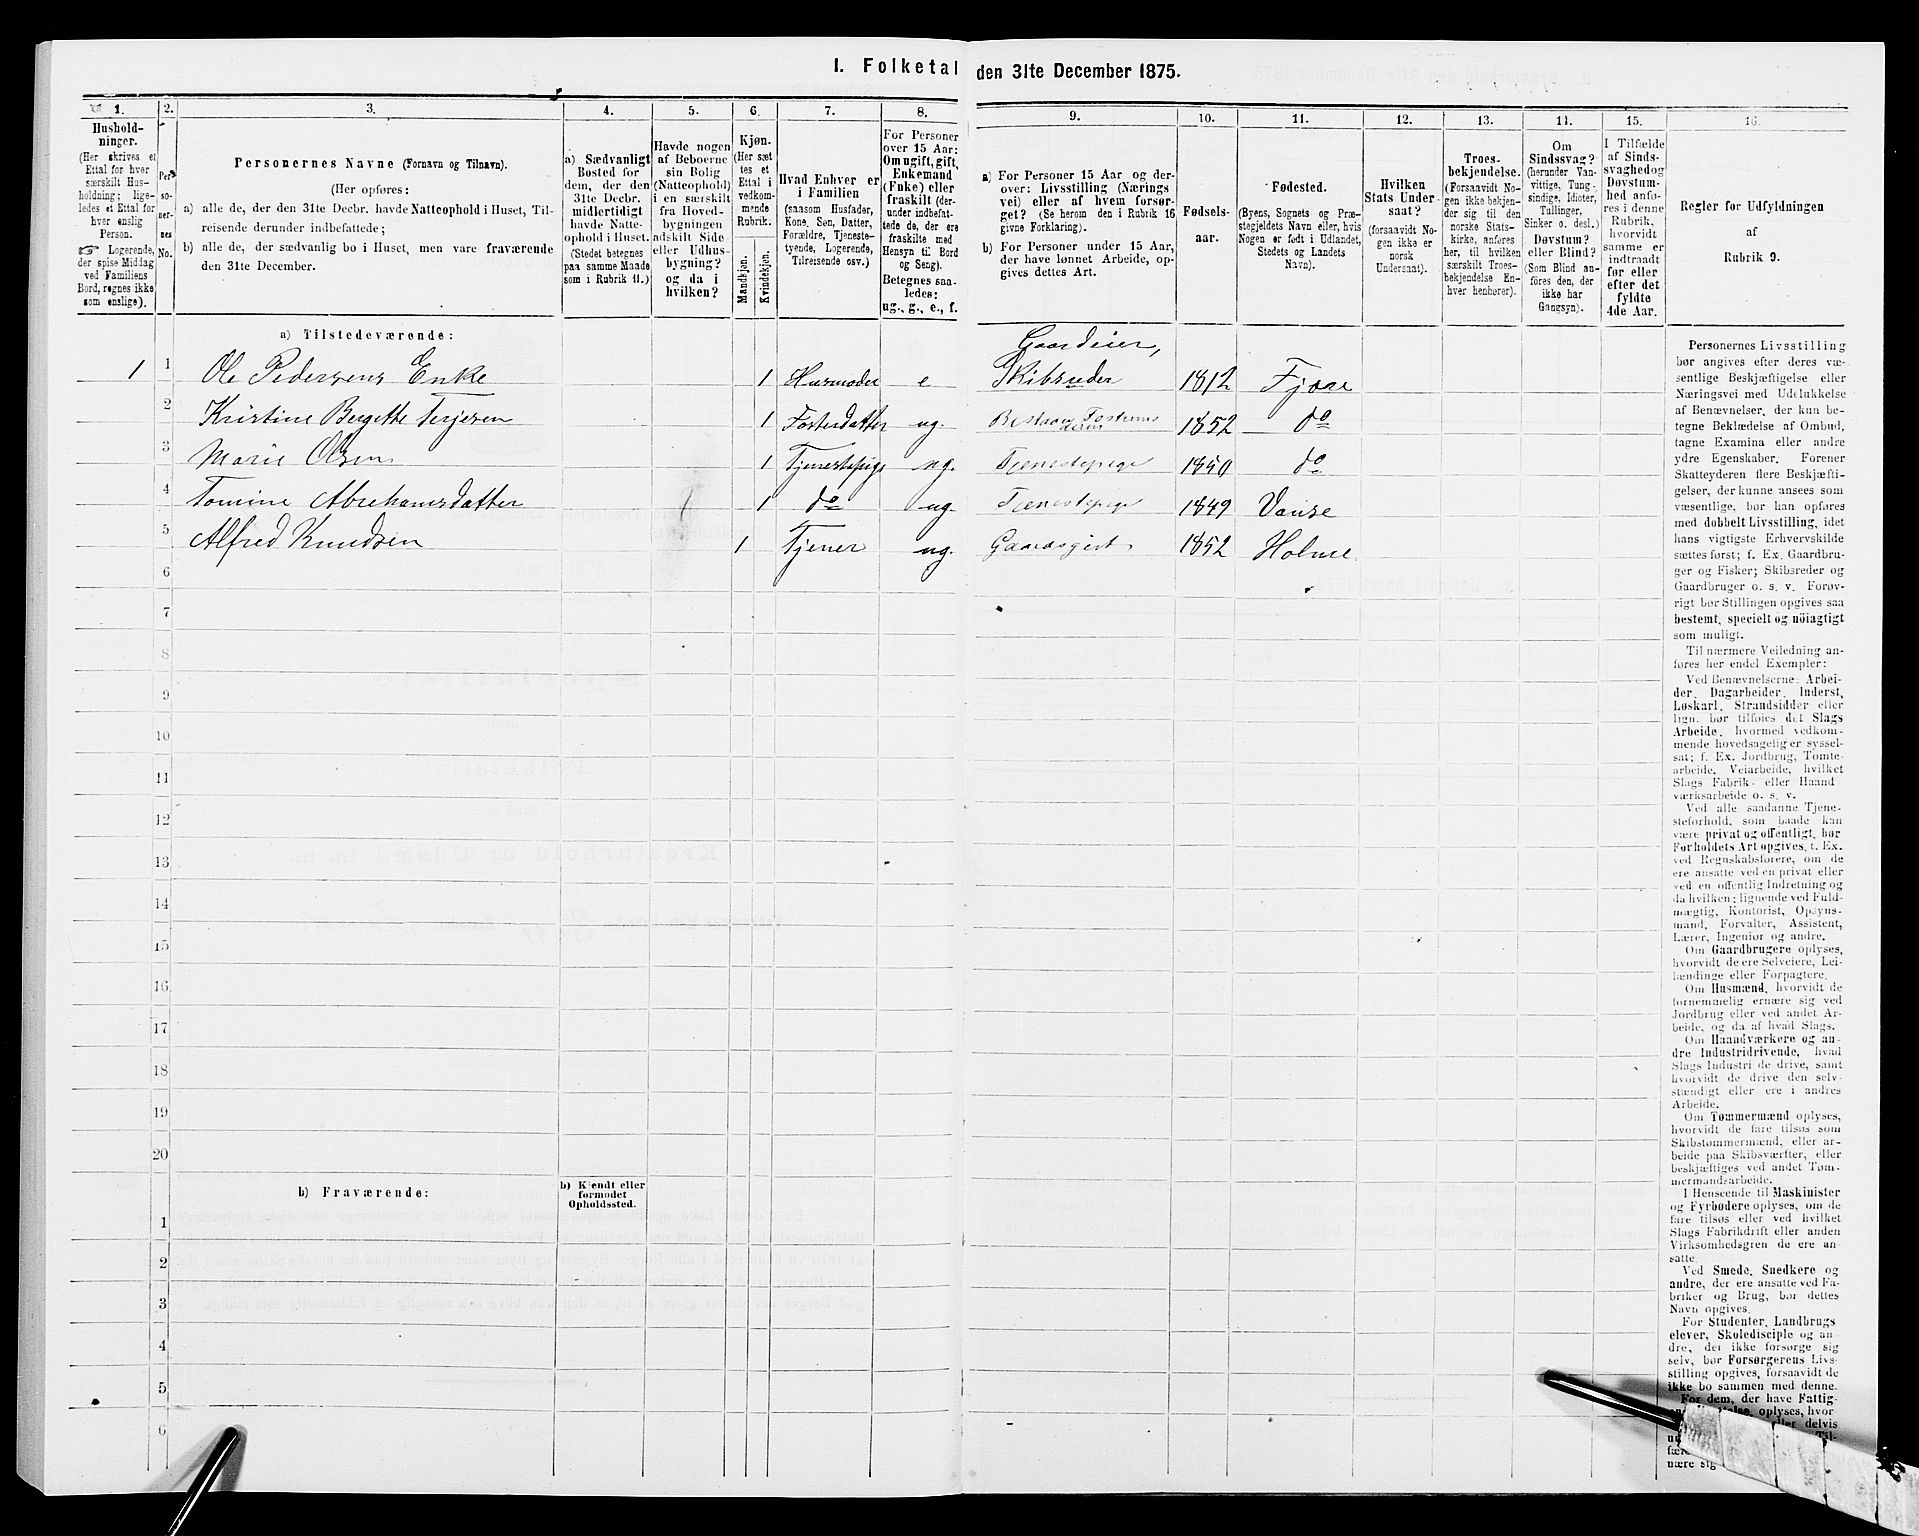 1. Folketal den 31te December 1875.
1.
2.
3.
4.
5.
6.
7.
8.
9.
10.
11.
12.
13.
14.
15.
16.
Hushold-
ninger.
(Her skrives et
Ettal for hver
særskilt Hus-
holdning; lige-
ledes et Ettal for
hver enslig
Person.
☞ Logerende,
der spise Middag
ved Familiens
Bord, regnes ikke
som enslige).
Per-
so-
ner-
nes
No.
Personernes Navne (Fornavn og Tilnavn).
(Her opføres:
a) alle de, der den 31te Decbr. havde Natteophold i Huset, Til-
reisende derunder indbefattede;
b) alle de, der sædvanlig bo i Huset, men vare fraværende
den 31te December.
a) Sædvanligt
Bosted for
dem, der den
31te Decbr.
midlertidigt
havde Natte-
ophold i Huset.
(Stedet betegnes
paa samme Maade
som i Rubrik 11.)
Havde nogen
af Beboerne
sin Bolig
(Natteophold)
i en særskilt
fra Hoved-
bygningen
adskilt Side
eller Udhus-
bygning?
og da i
hvilken?
Kjøn.
(Her sæt
tes et
Ettal i
vedkom-
mende
Rubrik.
Mandkjøn.
Kvindekjøn.
Hvad Enhver er
i Familien
(saasom Husfader,
Kone, Søn, Datter,
Forældre, Tjeneste-
tyende, Logerende,
Tilreisende osv.)
For Personer
over 15 Aar:
Om ugift, gift,
Enkemand
(Enke) eller
fraskilt (der-
under indbefat-
tede de, der ere
fraskilte med
Hensyn til Bord
og Seng).
Betegnes saa-
ledes:
ug., g., e., f.
a) For Personer 15 Aar og der-
over: Livsstilling (Nærings
vei) eller af hvem forsør-
get? (Se herom den i Rubrik 16
givne Forklaring).
b) For Personer under 15 Aar,
der have lønnet Arbeide, op-
gives dettes Art.
Fødsels-
aar.
Fødested.
(Byens, Sognets og Præ-
stegjeldets Navn eller, hvis
Nogen er født i Udlandet,
Stedets og Landets
Navn).
Hvilken
Stats Under-
saat?
(forsaavidt No-
gen ikke er
norsk
Undersaat).
Troes-
bekjendelse.
(Forsaavidt No-
gen ikke bekjen-
der sig til den
norske Stats-
kirke, anføres
her, til hvilken
særskilt Troes-
bekjendelse En-
hver henhører).
Om
Sindssvag?
(herunder Van-
vittige, Tung-
sindige, Idioter,
Tullinger,
Sinker o. desl.)
Døvstum?
eller Blind?
(Som Blind an-
føres den, der
ikke har
Gangsyn).
I Tilfælde
af Sinds-
svaghed og
Døvstum-
hed anfø-
res i denne
Rubrik.
hvorvidt
samme er
indtraadt
før eller
efter det
fyldte
4de Aar.
Regler før Udfyldningen
af
Rubrik 9.
a) Tilstedeværende:
Gaardeier,
1 1 Ole Pedersens Enke 1 Husmoder e Skibsreder 1812 Fjære
2 Kristine Bergette Terjesen 1 Fosterdatter ug. 1852 do
3 Marie Olsen 1 Tjenestepige ug. Tjenestepige 1850 do
4 Tomine Abrahamsdatter 1 do ug. Tjenestepige 1849 Vanse
5 Alfred Knudsen 1 Tjener ug. Gaardsgut 1852 Holme
6
7
8
9
10
11
12
13
14
15
16
17
18
19
20
b) Fraværende:
b) Kjendt eller
formodet
Opholdssted.
1
2
3
4
5
6
Personernes Livsstilling
bør angives efter deres væ-
sentlige Beskjæftigelse eller
Næringsvei med Udelukkelse
af Benævnelser, der kun be-
tegne Beklædelse af Ombud,
tagne Examina eller andre
ydre Egenskaber. Forener
Skatteyderen flere Beskjæfti-
gelser, der kunne ansees som
væsentlige, bør han opføres
med dobbelt Livsstilling, idet
hans vigtigste Erhvervskilde
sættes først; f. Ex. Gaardbru-
ger og Fisker; Skibsreder og
Gaardbruger o. s. v. Forøv-
rigt bør Stillingen opgives saa
bestemt, specielt og nøiagtigt
som muligt.
Til nærmere Veiledning an-
føres her endel Exempler:
Ved Benævnelserne: Arbei-
der, Dagarbeider, Inderst,
Løskarl, Strandsidder eller
lign. bør tilføies det Slags
Arbeide, hvormed vedkom-
mende hovedsagelig er syssel-
sat; f. Ex. Jordbrug, Tomte-
arbeide, Veiarbeide, hvilket
Slags Fabrik- eller Haand
værksarbeide o. s. v.
Ved alle saadanne Tjene-
steforhold, som baade kan
være privat og offentligt, bør
Forholdets Art opgives, f. Ex.
ved Regnskabsførere, om de
ere ansatte ved en privat eller
ved en offentlig Indretning og
da hvilken; lignende ved Fuld-
mægtig, Kontorist, Opsyns-
mand, Forvalter, Assistent,
Lærer, Ingeniør og andre.
Om Gaardbrugere oplyses,
hvorvidt de ere Selveiere, Lei-
lændinge eller Forpagtere.
Om Husmænd, hvorvidt de
fornemmelig ernære sig ved
Jordbrug eller ved andet Ar-
beide, og da af hvad Slags.
Om Haandværkere og an-
dre Industridrivende, hvad
Slags Industri de drive, samt
hvorvidt de drive den selv-
stændigt eller ere i andres
Arbeide.
Om Tømmermænd oplyses,
hvorvidt de fare tilsøs som
Skibstømmermænd, eller ar-
beide paa Skibsværfter, eller
beskjæftiges ved andet Tøm-
mermandsarbeide.
I Henseende til Maskinister
og Fyrbødere oplyses, om de
fare tilsøs eller ved hvilket
Slags Fabrikdrift eller anden
Virksomhedsgren de ere an-
satte.
Ved Smede, Snedkere og
andre, der ere ansatte ved Fa-
briker og Brug, bør dettes
Navn opgives.
For Studenter, Landbrugs
elever, Skoledisciple og an-
dre, der ikke forsørge sig
selv, bør Forsørgerens Livs-
stilling opgives, forsaavidt de
ikke bo sammen med denne.
For dem, der have Fattig-
oplyses, hvor
eller delvis
nære sig